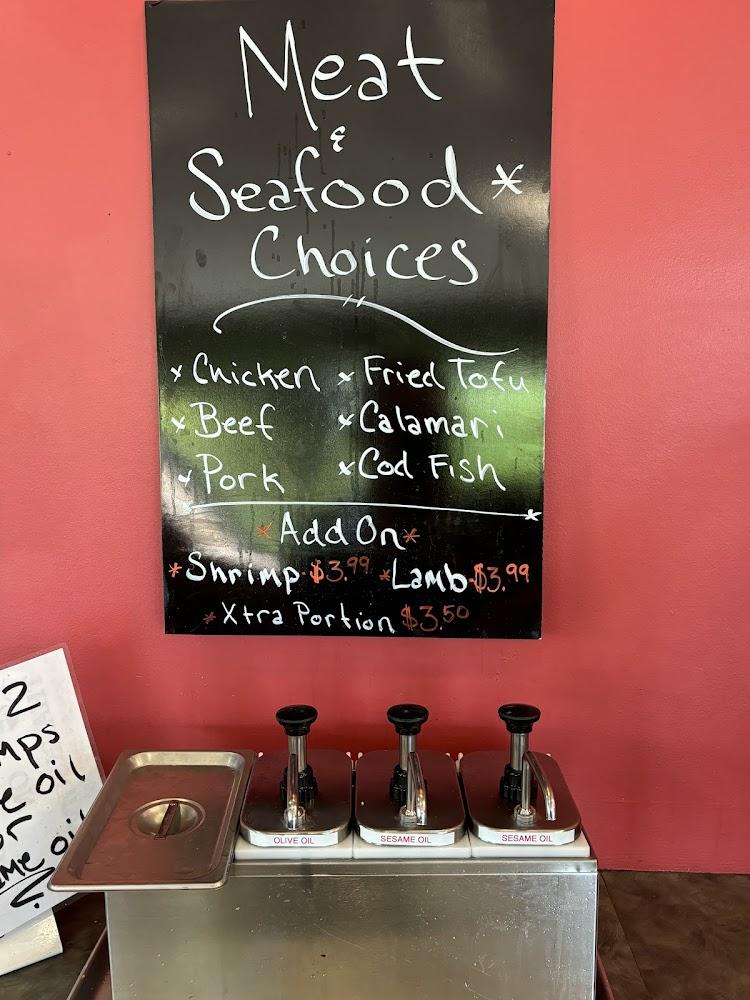 Meat
&
Seafood *
Choices
x Chicken x Fried Tofu
x Beef x Calamari
x Pork x Cod Fish
* Add On *
* Shrimp - $3.99 * Lamb - $3.99
* Xtra Portion $3.50
2
mps
e oil
or
ame oil
OLIVE OIL
SESAME OIL
SESAME OIL